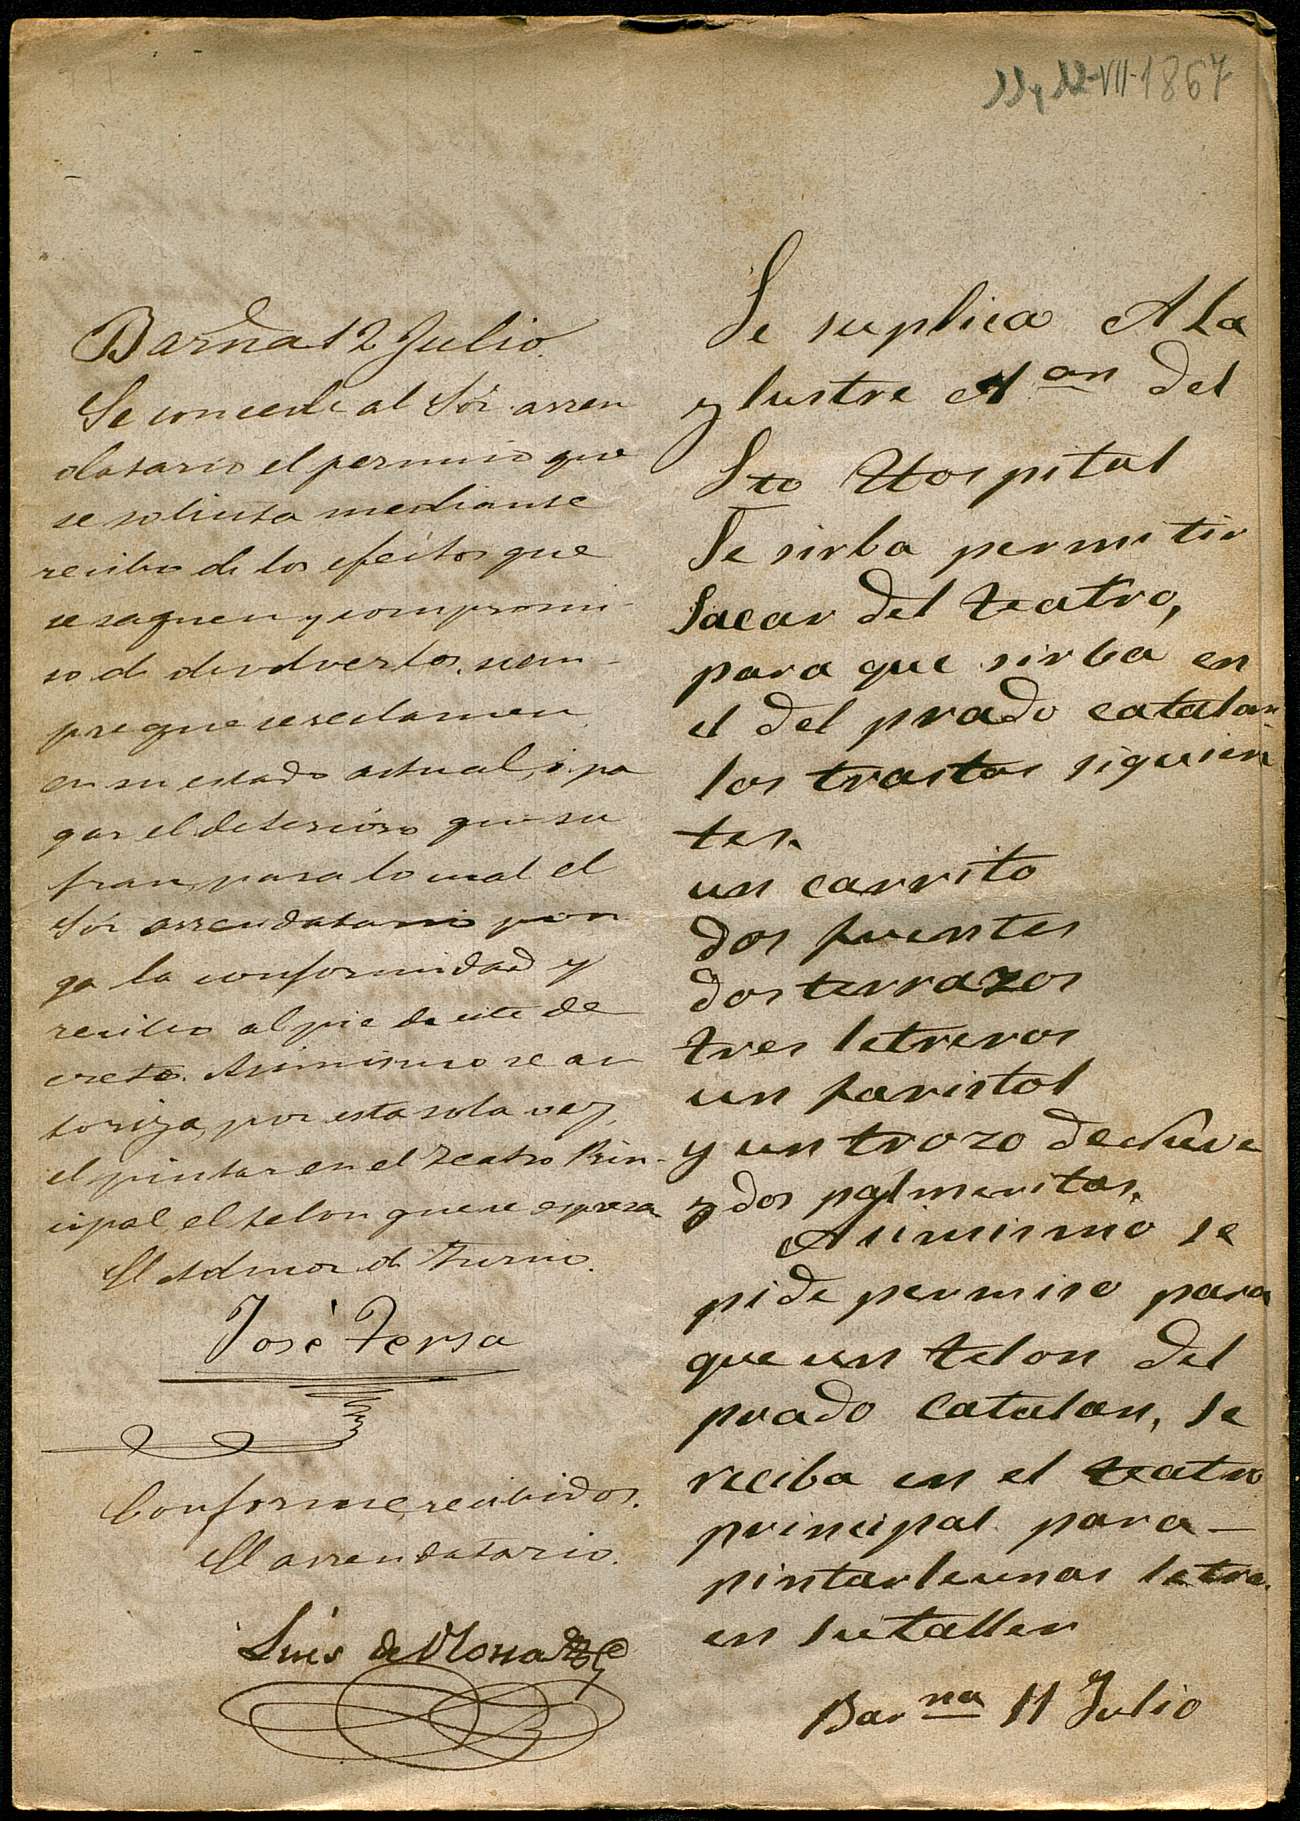 11 y 12-VII-1867
Se suplica A La
y lustre A on del
Sto Hospital
Se sirba permitir
Sacar del teatro,
para que sirba en
el del prado catalan
los trastos siguien
tes.
un carrito
dos fuentes
dos terrazos
tres letreros
un faristol
y un trozo de nuve
y dos palmeritas.
Asimismo se
pide permiso para
que un telon del
prado Catalan, se
reciba en el teatro
principal para
pintarle unas letras
en su taller
Bar na 11 Julio
Barna 12 Julio.
Se concede al Sór. arren
datario el permiso que
se solicita mediante
recibo de los efectos que
se saquen y compromi-
so de devolverlos, siem-
pre que se reclamen
en su estado actual, ó pa
gar el deterioro que su
fran, para lo cual el
Sór arrendatario pon
ga la conformidad y
recibo al pie de este de
creto. Asimismo se au
toriza, por esta sola vez,
el pintar en el Teatro Prin-
cipal el telon que se espresa
El Admor de Turno.
José Fersa
Conforme, recibidos.
El arrendatario.
Luis de